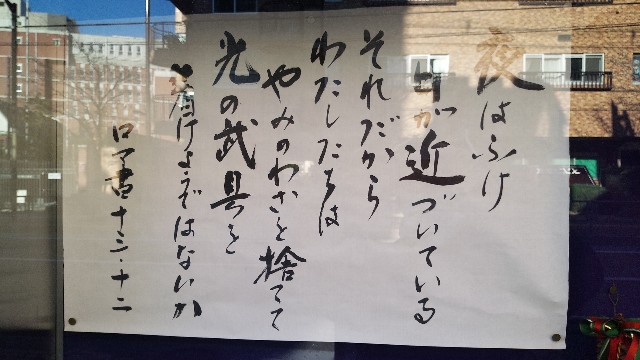 夜はふけ
日が近づいている
それだから
わたしたちは
やみのわざを捨てて
光の武具を
着けようではないか
ロマ書十三・十二